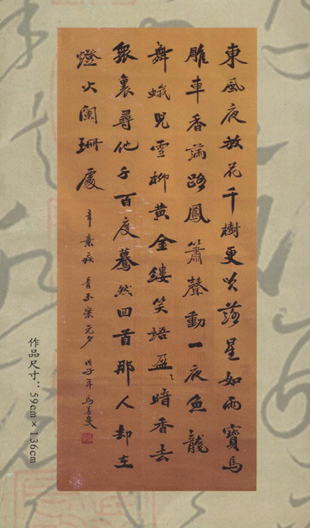 東風夜放花千樹更吹落星如雨寶馬
雕車香滿路鳳簫聲動一夜魚龍
舞蛾兒雪柳黃金縷笑語盈、暗香去
眾裏尋他千百度驀然回首那人却在
燈火闌珊處
辛棄疾 青玉案元夕 戊子年
作品尺寸：59cm×136cm